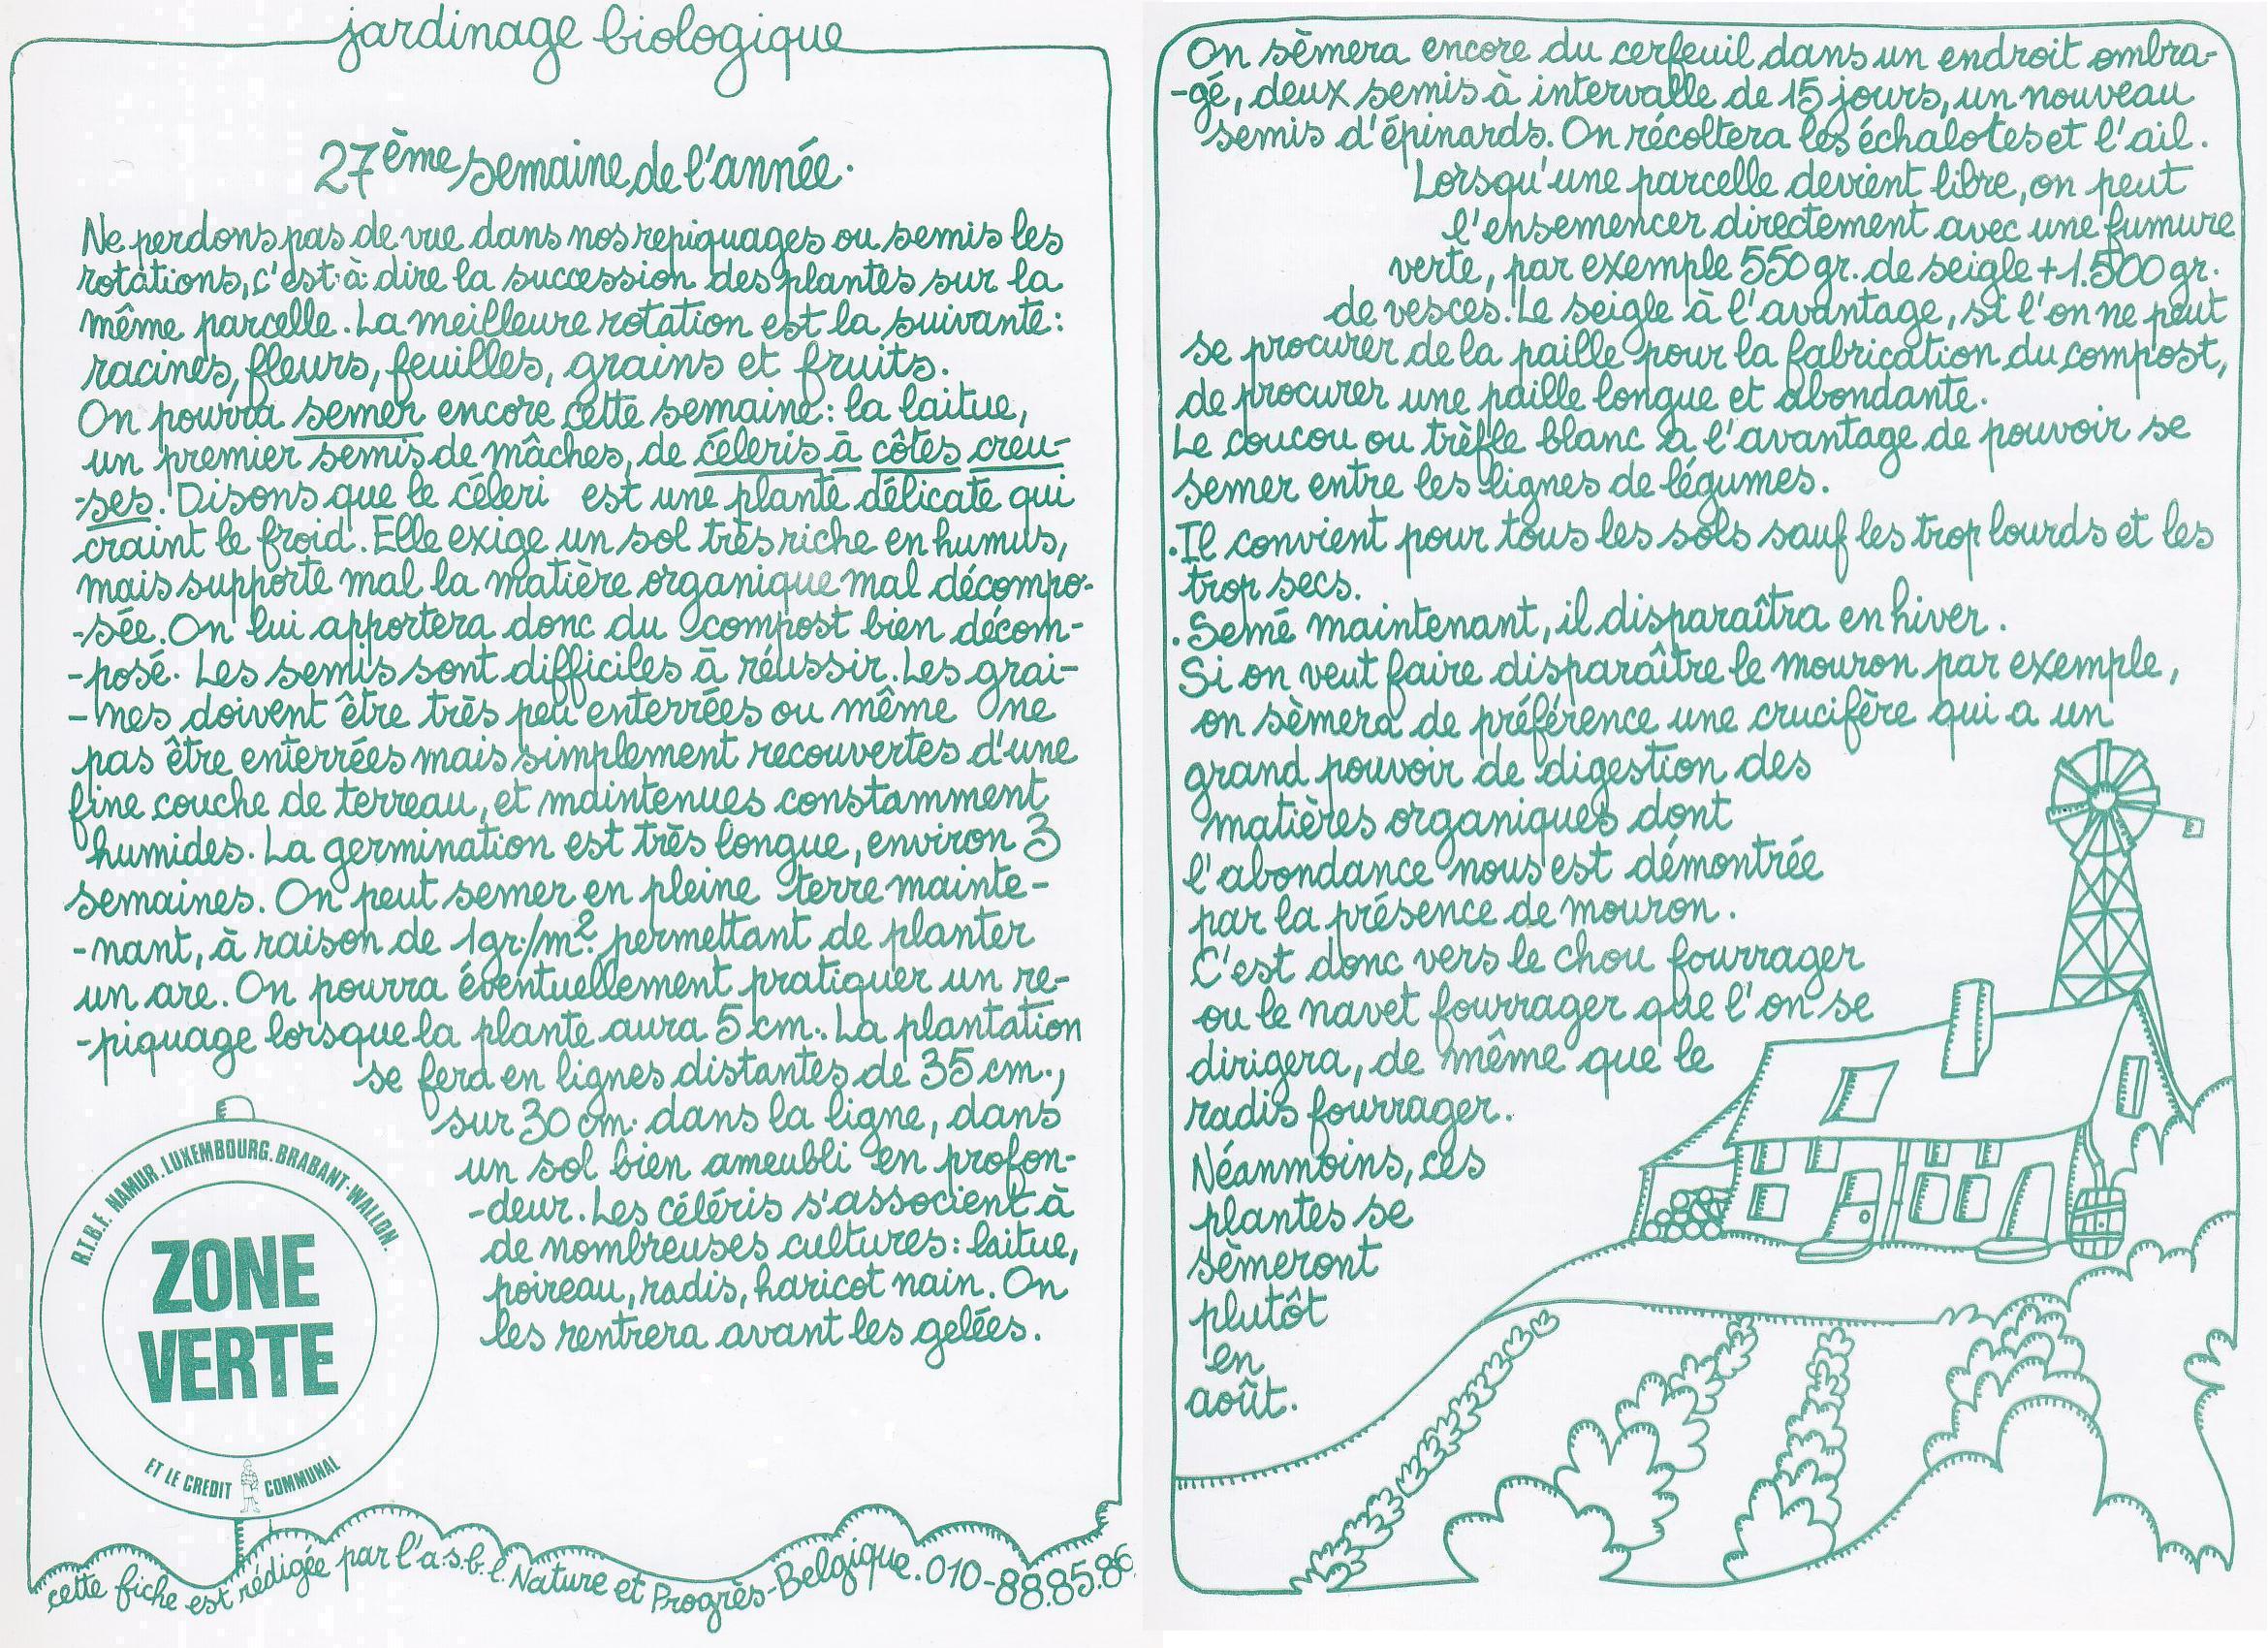 jardinage biologique
27ème semaine de l'année.
Ne perdons pas de vue dans nos repiquages ou semis les
rotations, c'est-à-dire la succession des plantes sur la
même parcelle. La meilleure rotation est la suivante:
racines, fleurs, feuilles, grains et fruits.
On pourra semer encore cette semaine: la laitue,
un premier semis de mâches, de céleris à côtes creu-
-ses. Disons que le céleri est une plante délicate qui
craint le froid. Elle exige un sol très riche en humus,
mais supporte mal la matière organique mal décompo-
-sée. On lui apportera donc du compost bien décom-
-posé. Les semis sont difficiles à réussir. Les grai-
-nes doivent être très peu enterrées ou même ne
pas être enterrées mais simplement recouvertes d'une
fine couche de terreau, et maintenues constamment
humides. La germination est très longue, environ 3
semaines. On peut semer en pleine terre mainte-
-nant, à raison de 1gr./m². permettant de planter
un are. On pourra éventuellement pratiquer un re-
-piquage lorsque la plante aura 5 cm. La plantation
se fera en lignes distantes de 35 cm.,
sur 30 cm. dans la ligne, dans
un sol bien ameubli en profon-
-deur. Les céléris s'associent à
de nombreuses cultures: laitue,
poireau, radis, haricot nain. On
les rentrera avant les gelées.
R.T.B.F. NAMUR. LUXEMBOURG. BRABANT-WALLON.
ZONE
VERTE
ET LE CREDIT COMMUNAL
cette fiche est rédigée par l'a.s.b.l. Nature et Progrès-Belgique. 010-88.85.86
On sèmera encore du cerfeuil dans un endroit ombra-
-gé, deux semis à intervalle de 15 jours, un nouveau
semis d'épinards. On récoltera les échalotes et l'ail.
Lorsqu'une parcelle devient libre, on peut
l'ensemencer directement avec une fumure
verte, par exemple 550 gr. de seigle + 1.500 gr.
de vesces. Le seigle à l'avantage, si l'on ne peut
se procurer de la paille pour la fabrication du compost,
de procurer une paille longue et abondante.
Le coucou ou trèfle blanc a l'avantage de pouvoir se
semer entre les lignes de légumes.
.Il convient pour tous les sols sauf les trop lourds et les
trop secs.
.Semé maintenant, il disparaîtra en hiver.
Si on veut faire disparaître le mouron par exemple,
on sèmera de préférence une crucifère qui a un
grand pouvoir de digestion des
matières organiques dont
l'abondance nous est démontrée
par la présence de mouron.
C'est donc vers le chou fourrager
ou le navet fourrager que l'on se
dirigera, de même que le
radis fourrager.
Néanmoins, ces
plantes se
sèmeront
plutôt
en
août.